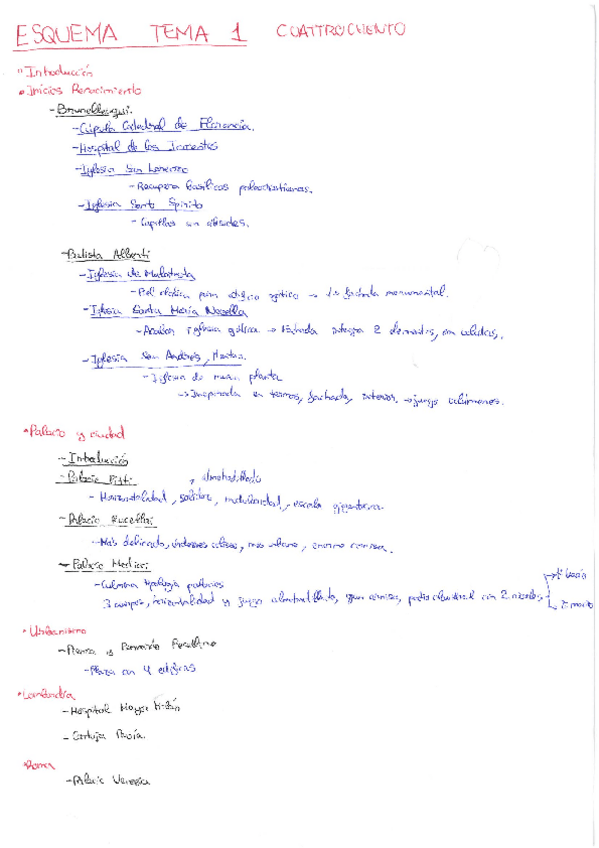 ESQUEMA TEMA 1 CUATTROCIENTO
Introducción
Inicios Renacimiento
- Brunelleschi.
- Cúpula Catedral de Florencia.
- Hospital de los Inocentes
- Iglesia San Lorenzo
- Recupera basílicas paleocristianas.
- Iglesia Santo Spirito
- Capillas en ábsides.
- Batista Alberti
- Iglesia de Malatesta
- Piel clásica para edificio gótico → 1ª fachada monumental.
- Iglesia Santa María Novella
- Acabar iglesia gótica → fachada 2 elementos, con volutas.
- Iglesia San Andrés, Mantua
- Iglesia de nueva planta
→ Inspirada en termas, fachada, interior → juego volúmenes.
Palacio y ciudad
- Introducción
- Palacio Pitti
almohadillado
- Horizontalidad, solidez, modularidad, escala gigantesca.
- Palacio Rucellai
- Más delicado, órdenes clásicos, más urbano, enorme cornisa.
- Palacio Medici
- Culmina tipología palacios
3 cuerpos, horizontalidad y juego almohadillado, gran cornisa, patio claustral con 2 niveles
1º vacío
2º macizo
Urbanismo
- Pienza Bernardo Rosellino
- Plaza con 4 edificios
Lombardía
- Hospital Mayor Milán
- Cartuja Pavía.
Roma
- Palacio Venecia